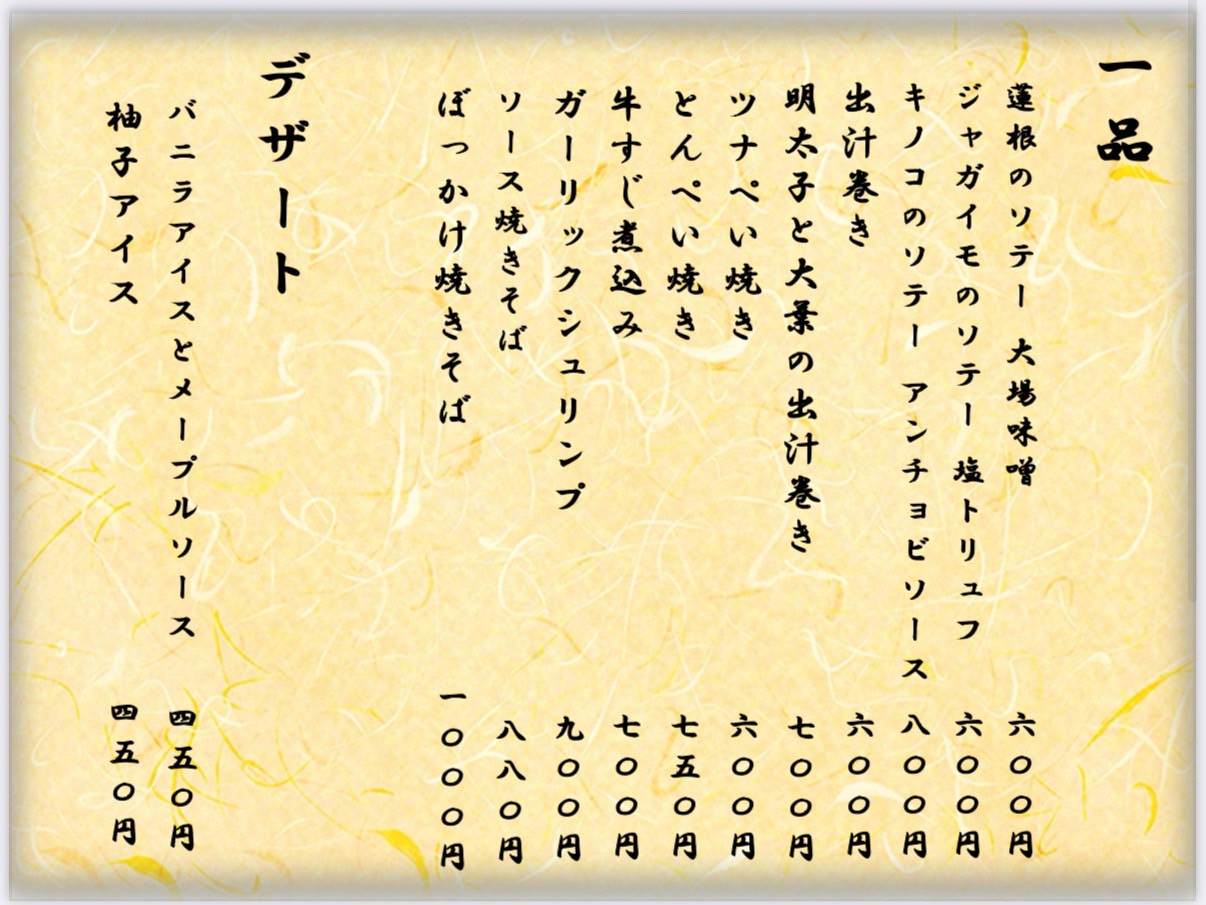 一品
蓮根のソテー 大場味噌 六〇〇円
ジャガイモのソテー 塩トリュフ 六〇〇円
キノコのソテー アンチョビソース 八〇〇円
出汁巻き 六〇〇円
明太子と大葉の出汁巻き 七〇〇円
ツナぺい焼き 六〇〇円
とんぺい焼き 七五〇円
牛すじ煮込み 七〇〇円
ガーリックシュリンプ 九〇〇円
ソース焼きそば 八八〇円
ぼっかけ焼きそば 一〇〇〇円
デザート
バニラアイスとメープルソース 四五〇円
柚子アイス 四五〇円